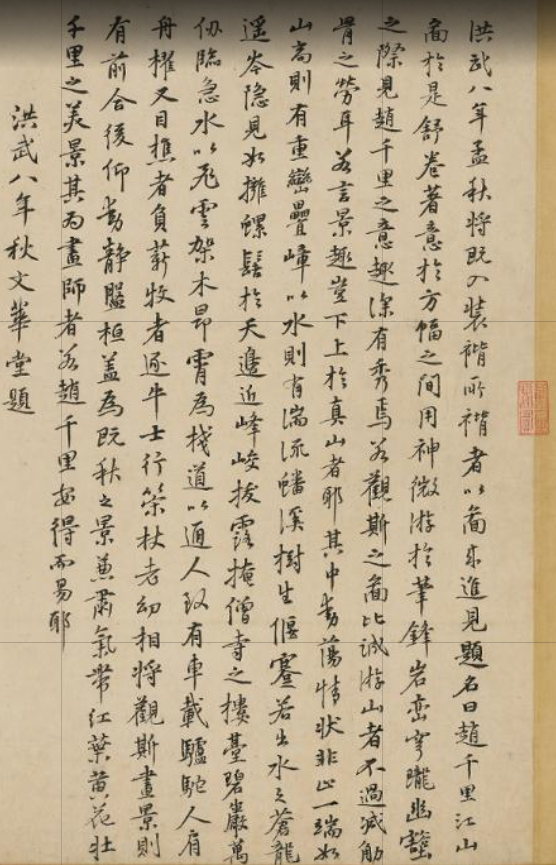 洪武八年孟秋将既入裝褙所褙者以圖來進見題名曰趙千里江山
圖於是舒卷著意於方幅之間用神微游於筆鋒岩巒穹隴幽壑
之際見趙千里之意趣深有秀焉若觀斯之圖比誠游山者不過減觔
骨之勞耳若言景趣豈下上於真山者耶其中動蕩情狀非止一端如
山高則有重巒疊嶂以水則有湍流蟠溪樹生偃蹇若出水之蒼龍
遥岑隐見如擁螺髻於天邊近峰峻拔露掩僧寺之樓臺碧巖萬
仞臨急水以飛雲架木昂霄為棧道以通人致有車載驢駝人有
舟櫂又目樵者負薪牧者逐牛士行策杖老幼相将觀斯畫景則
有前合後仰動静盤桓蓋為既秋之景兼肅氣帶紅葉黄花壯
千里之美景其為畫師者若趙千里安得而易耶
洪武八年秋文華堂題